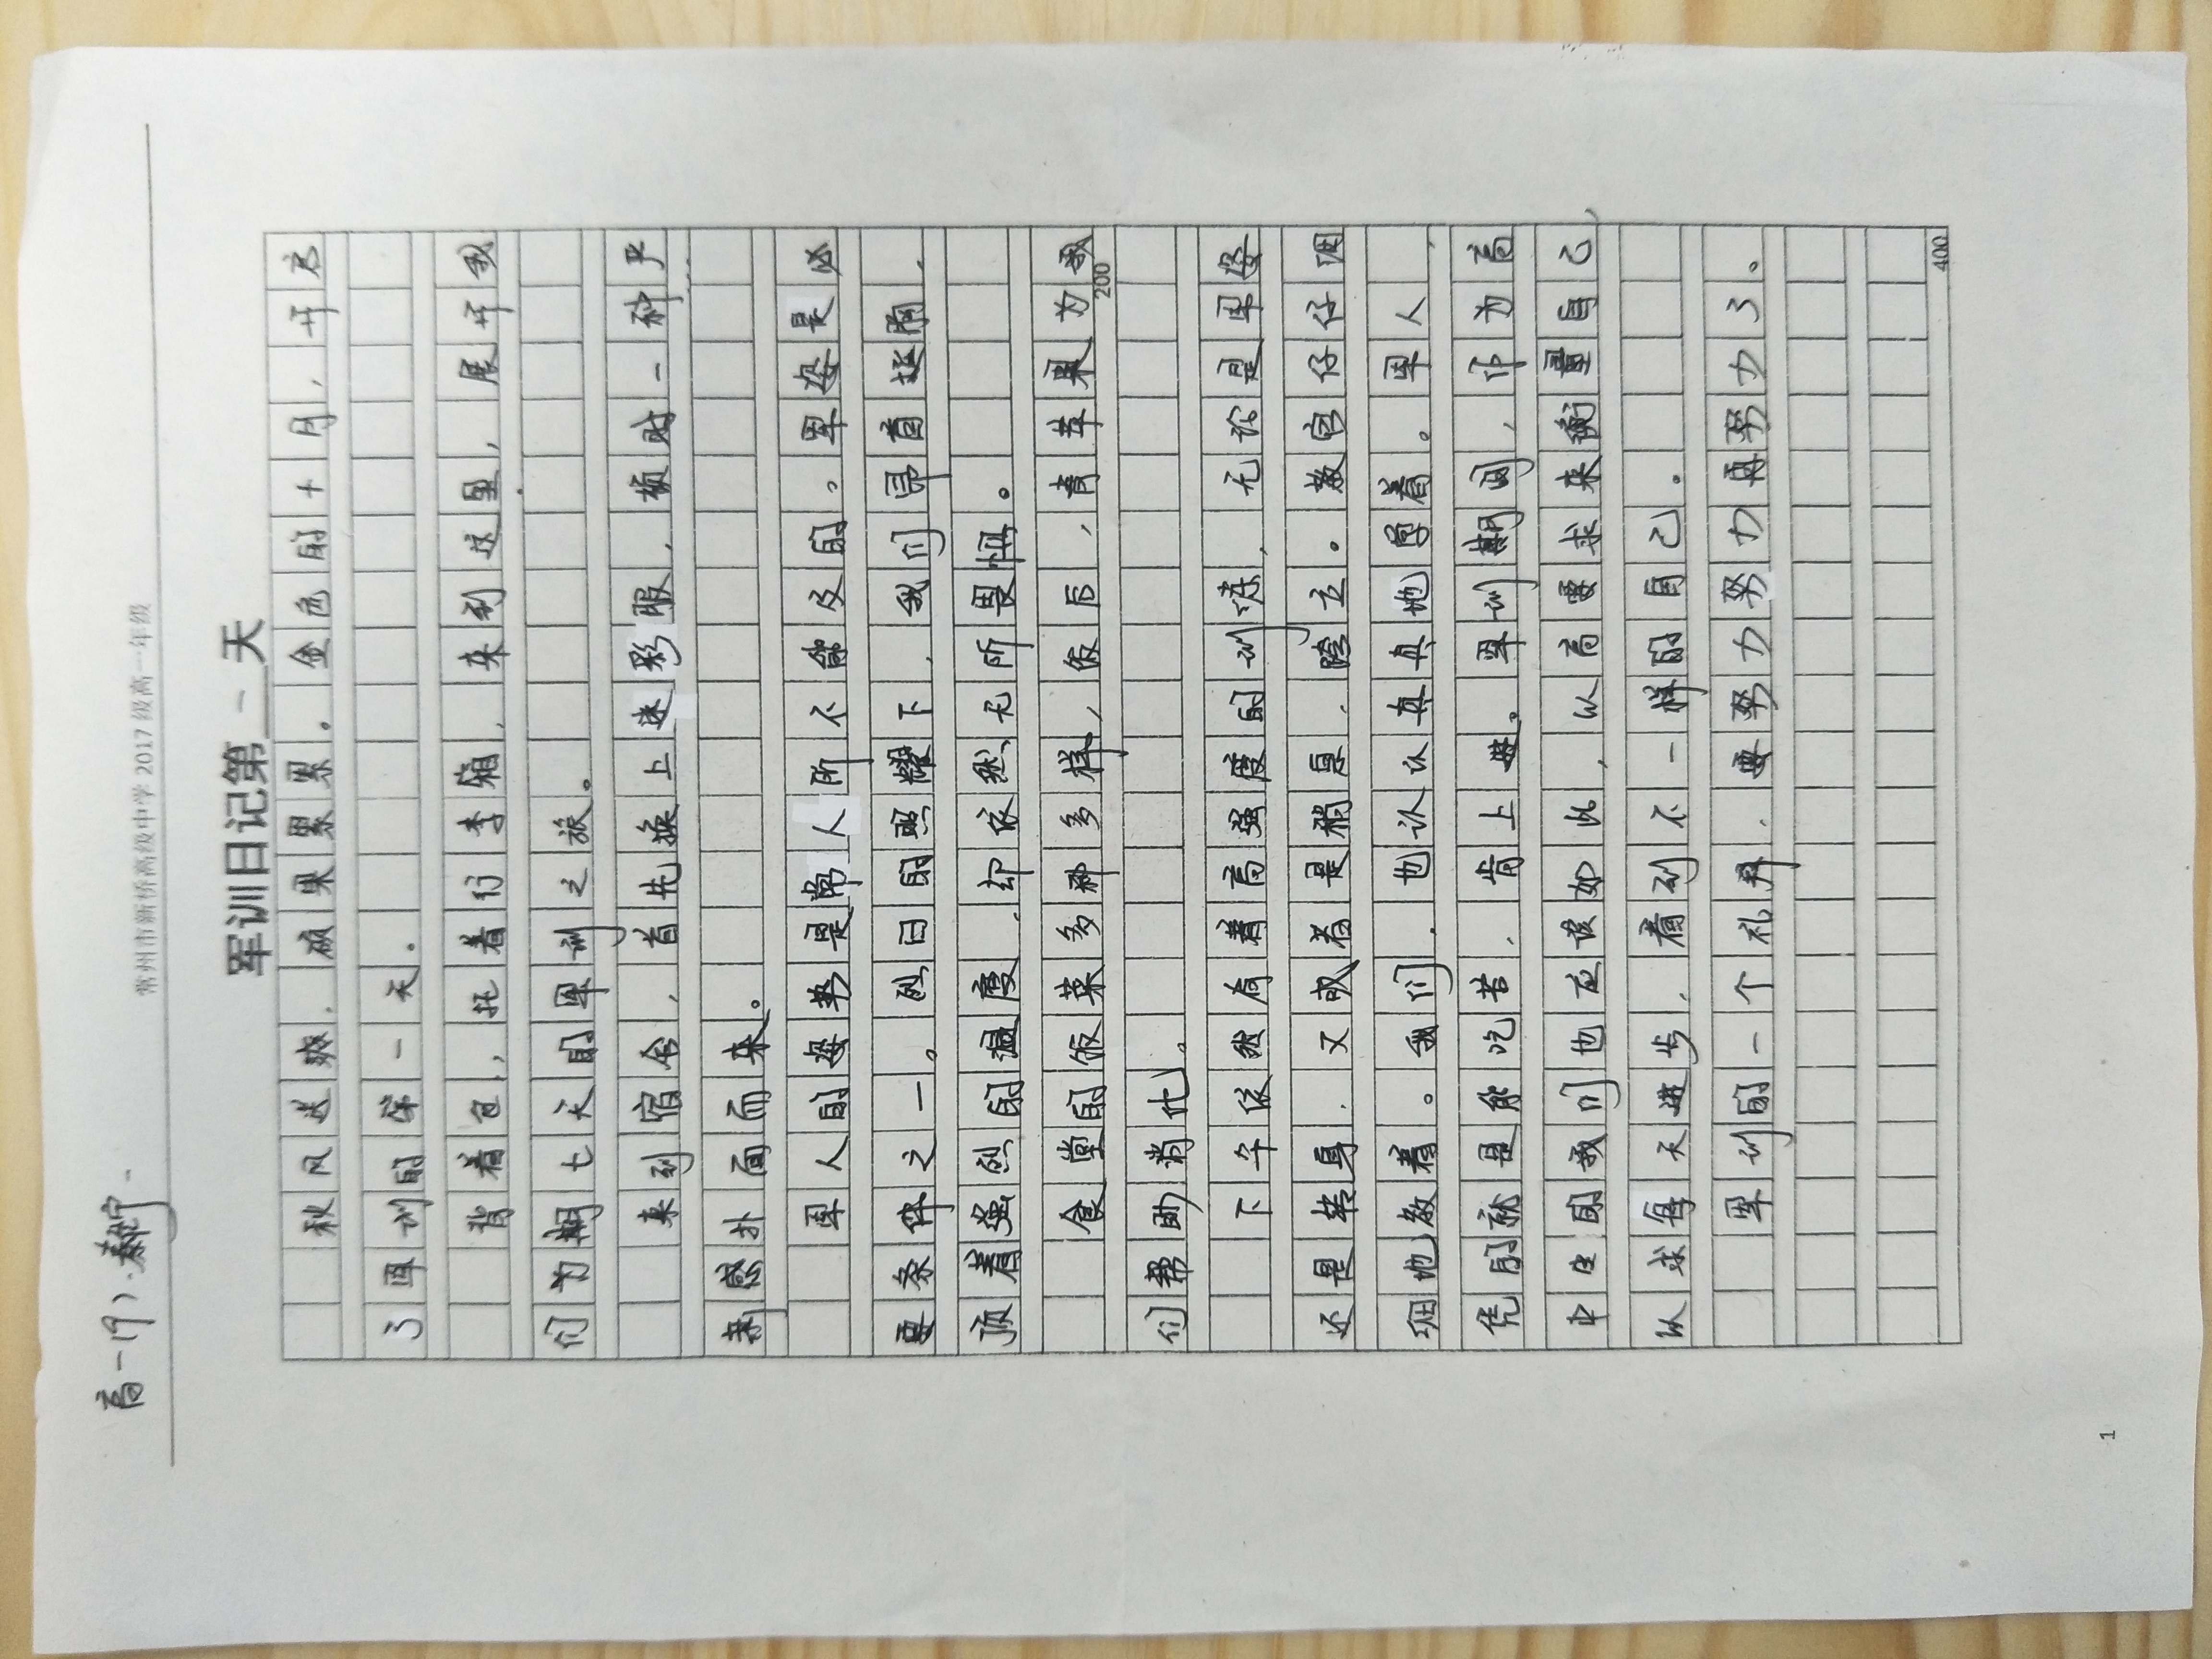 高一(9)
常州市新桥高级中学2017级高一年级
军训日记第一天
秋风送爽，硕果累累。金色的十月，开启
了军训的第一天。
背着包，托着行李箱，来到这里，展开我
们为期七天的军训之旅。
来到宿舍，首先换上迷彩服，顿时一种严
肃感扑面而来。
军人的姿势是常人所不能及的。军姿是必
要条件之一。烈日的照耀下，我们昂首挺胸，
顶着强烈的温度，却依然无所畏惧。
食堂的饭菜多种多样，饭后，青苹果为我
们帮助消化。
200
下午依然有着高强度的训练，无论是军姿
还是转身，又或者是稍息，跨立。教官仔仔细
细地教着。我们，也认认真真地学着。军人，
凭的就是能吃苦，肯上进。军训期间，作为高
中生的我们也应该如此，以高要求来衡量自己，
以求每天进步，看到不一样的自己。
军训的一个礼拜，要努力努力再努力了。
400
1